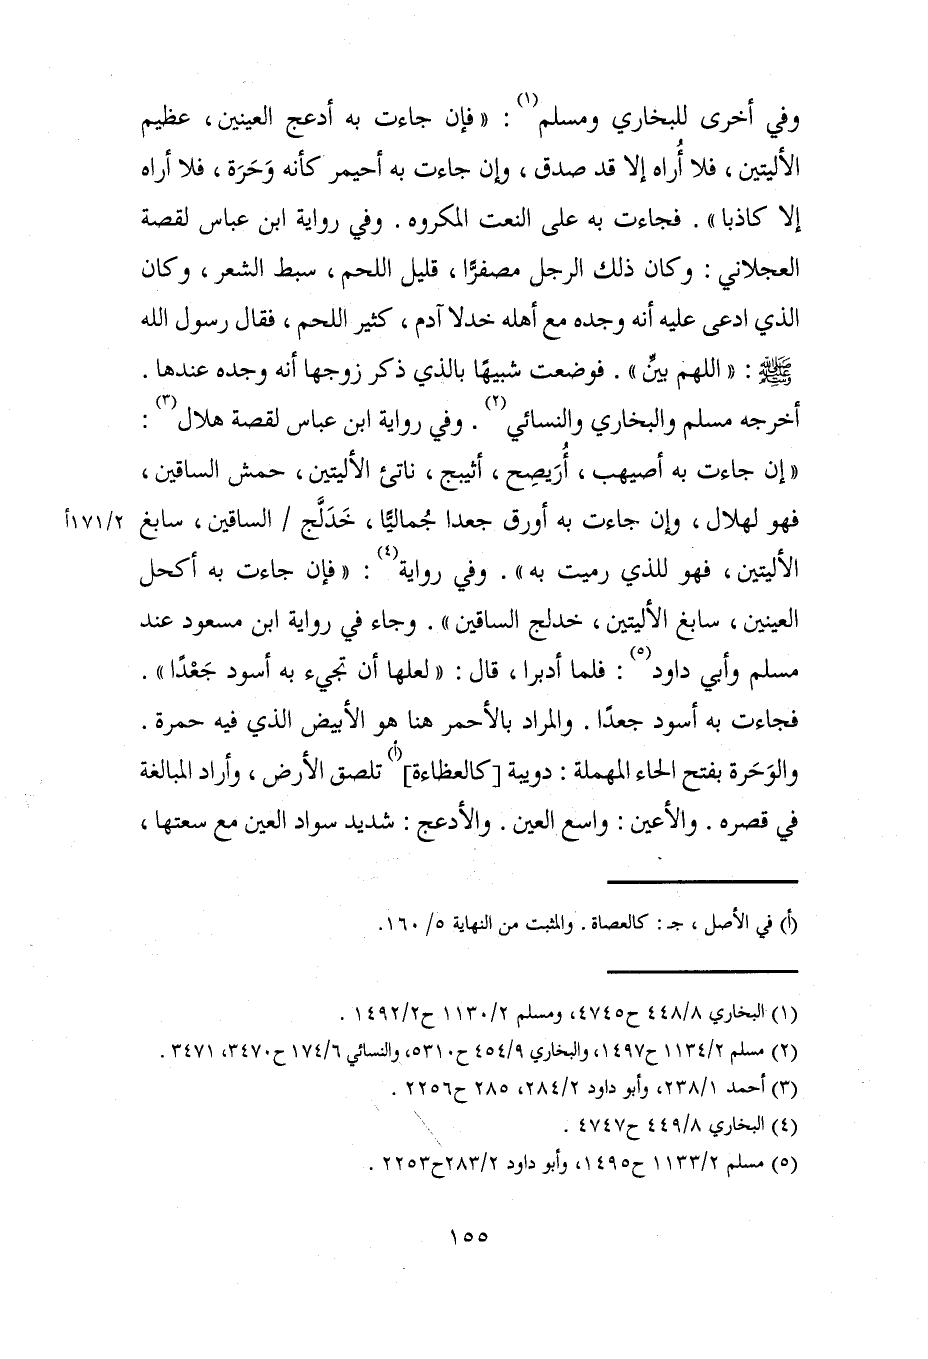 وفي أخرى للبخاري ومسلم(١) : « فإن جاءت به أدعج العينين ، عظيم
الأليتين ، فلا أُراه إلا قد صدق ، وإن جاءت به أحيمر كأنه وَحَرَة ، فلا أراه
إلا كاذبا » . فجاءت به على النعت المكروه . وفي رواية ابن عباس لقصة
العجلاني : وكان ذلك الرجل مصفرًّا ، قليل اللحم ، سبط الشعر ، وكان
الذي ادعى عليه أنه وجده مع أهله خدلا آدم ، كثير اللحم ، فقال رسول الله
ﷺ : « اللهم بيِّن » . فوضعت شبيهًا بالذي ذكر زوجها أنه وجده عندها .
أخرجه مسلم والبخاري والنسائي(٢) . وفي رواية ابن عباس لقصة هلال(٣) :
« إن جاءت به أصيهب ، أُرَيصِح ، أثيبج ، ناتئ الأليتين ، حمش الساقين ،
فهو لهلال ، وإن جاءت به أورق جعدا جُماليًّا ، خَدَلَّج / الساقين ، سابغ ١٧١/٢أ
الأليتين ، فهو للذي رميت به » . وفي رواية(٤) : « فإن جاءت به أكحل
العينين ، سابغ الأليتين ، خدلج الساقين » . وجاء في رواية ابن مسعود عند
مسلم وأبي داود(٥) : فلما أدبرا ، قال : « لعلها أن تجيء به أسود جَعْدًا » .
فجاءت به أسود جعدًا . والمراد بالأحمر هنا هو الأبيض الذي فيه حمرة .
والوَحَرة بفتح الحاء المهملة : دويبة [كالعظاءة](أ) تلصق الأرض ، وأراد المبالغة
في قصره . والأعين : واسع العين . والأدعج : شديد سواد العين مع سعتها ،
(أ) في الأصل ، جـ : كالعصاة . والمثبت من النهاية ٥/ ١٦٠.
(١) البخاري ٤٤٨/٨ ح٤٧٤٥، ومسلم ١١٣٠/٢ ح١٤٩٢/٢ .
(٢) مسلم ١١٣٤/٢ ح١٤٩٧، والبخاري ٤٥٤/٩ ح٥٣١٠، والنسائي ١٧٤/٦ ح٣٤٧٠، ٣٤٧١ .
(٣) أحمد ٢٣٨/١، وأبو داود ٢٨٤/٢، ٢٨٥ ح٢٢٥٦ .
(٤) البخاري ٤٤٩/٨ ح٤٧٤٧ .
(٥) مسلم ١١٣٣/٢ ح١٤٩٥، وأبو داود ٢٨٣/٢ح٢٢٥٣ .
١٥٥